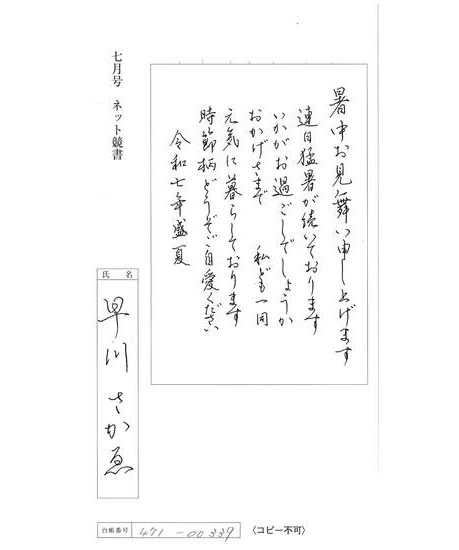 暑中お見舞い申し上げます
連日猛暑が続いております
いかがお過ごしでしょうか
おかげさまで 私ども一同
元気に暮らしております
時節柄どうぞご自愛ください
令和七年盛夏
七月号 ネット競書
氏名
早川 さかゑ
台紙番号 471-00339
〈コピー不可〉